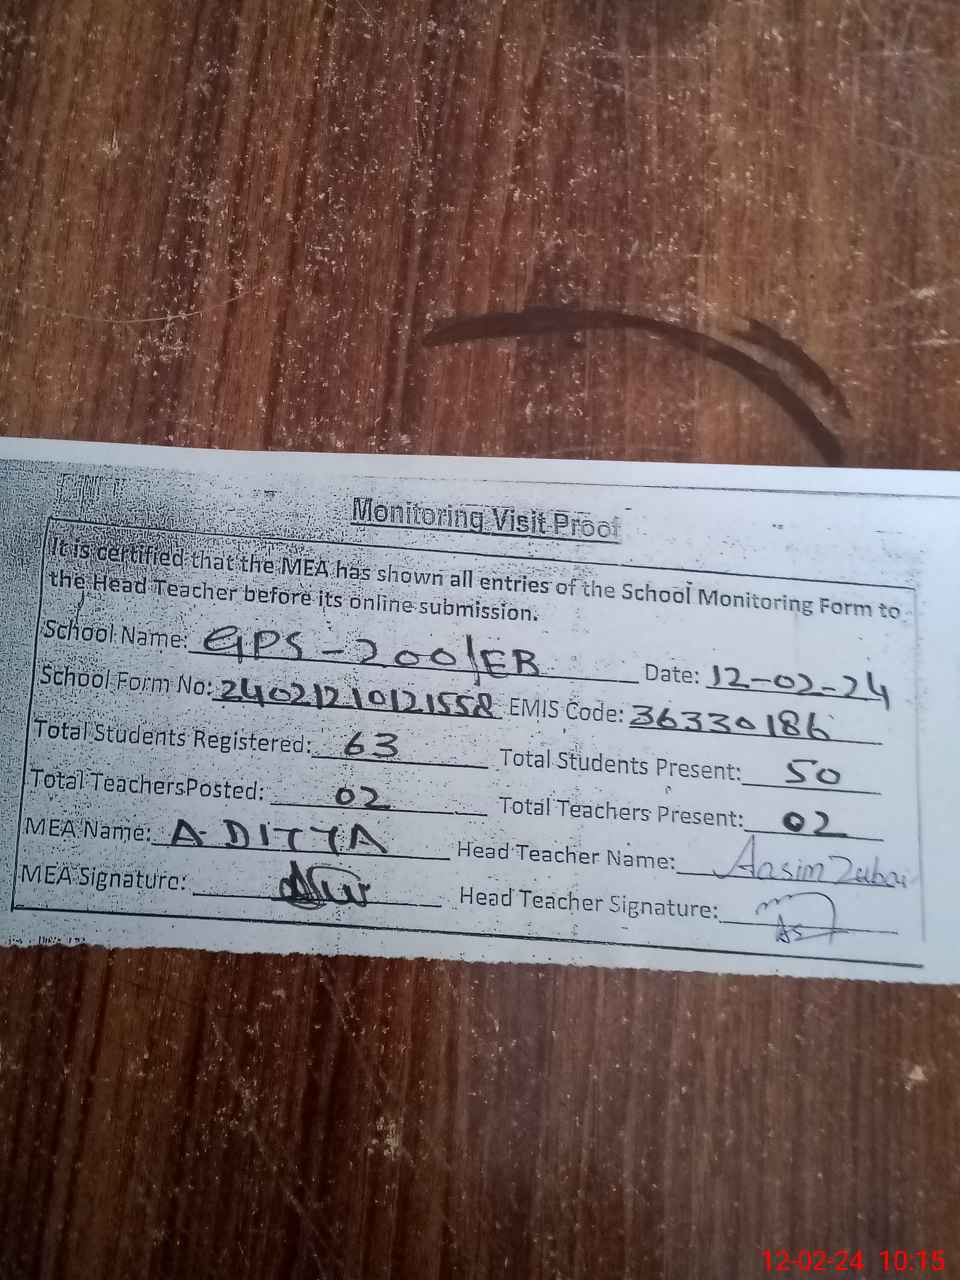 Monitoring Visit Proof
It is certified that the MEA has shown all entries of the School Monitoring Form to
the Head Teacher before its online submission.
School Name: GPS-200/EB Date: 12-02-24
School Form No: 24021210121558 EMIS Code: 36330186
Total Students Registered: 63 Total Students Present: 50
Total Teachers Posted: 02 Total Teachers Present: 02
MEA Name: A-DITTA Head Teacher Name: Aasim Zubai
MEA Signature: Head Teacher Signature:
12-02-24 10:15